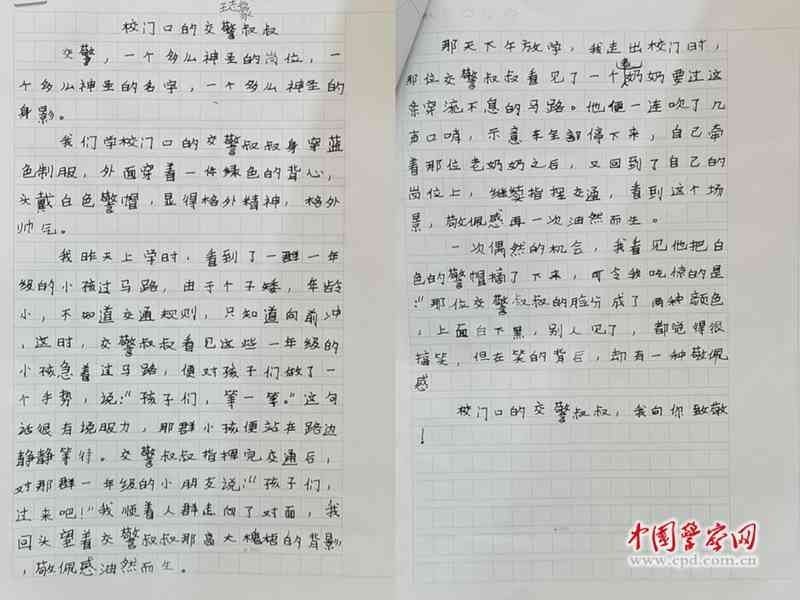 校门口的交警叔叔
交警，一个多么神圣的岗位，一
个多么神圣的名字，一个多么神圣的
身影。
我们学校门口的交警叔叔身穿蓝
色制服，外面穿着一件绿色的背心，
头戴白色警帽，显得格外精神，格外
帅气。
我昨天上学时，看到了一群一年
级的小孩过马路，由于个子矮，年龄
小，不知道交通规则，只知道向前冲
，这时，交警叔叔看见这些一年级的
小孩急着过马路，便对孩子们做了一
个手势，说："孩子们，等一等。"这句
话很有说服力，那群小孩便站在路边
静静等待。交警叔叔指挥完交通后，
对那群一年级的小朋友说："孩子们，
过来吧！"我顺着人群走向了对面，我
回头望着交警叔叔那高大魁梧的背影
，敬佩感油然而生。
那天下午放学，我走出校门时，
那位交警叔叔看见了一个老奶奶要过这
条穿流不息的马路。他便一连吹了几
声口哨，示意车全部停下来，自己牵
着那位老奶奶之后，又回到了自己的
岗位上，继续指挥交通，看到这个场
景，敬佩感再一次油然而生。
一次偶然的机会，我看见他把白
色的警帽摘了下来，可令我吃惊的是
："那位交警叔叔的脸分成了两种颜色
，上面白下黑，别人见了，都觉得很
搞笑，但在笑的背后，却有一种敬佩
感
校门口的交警叔叔，我向你致敬
！
中国警察网
www.cpd.com.cn